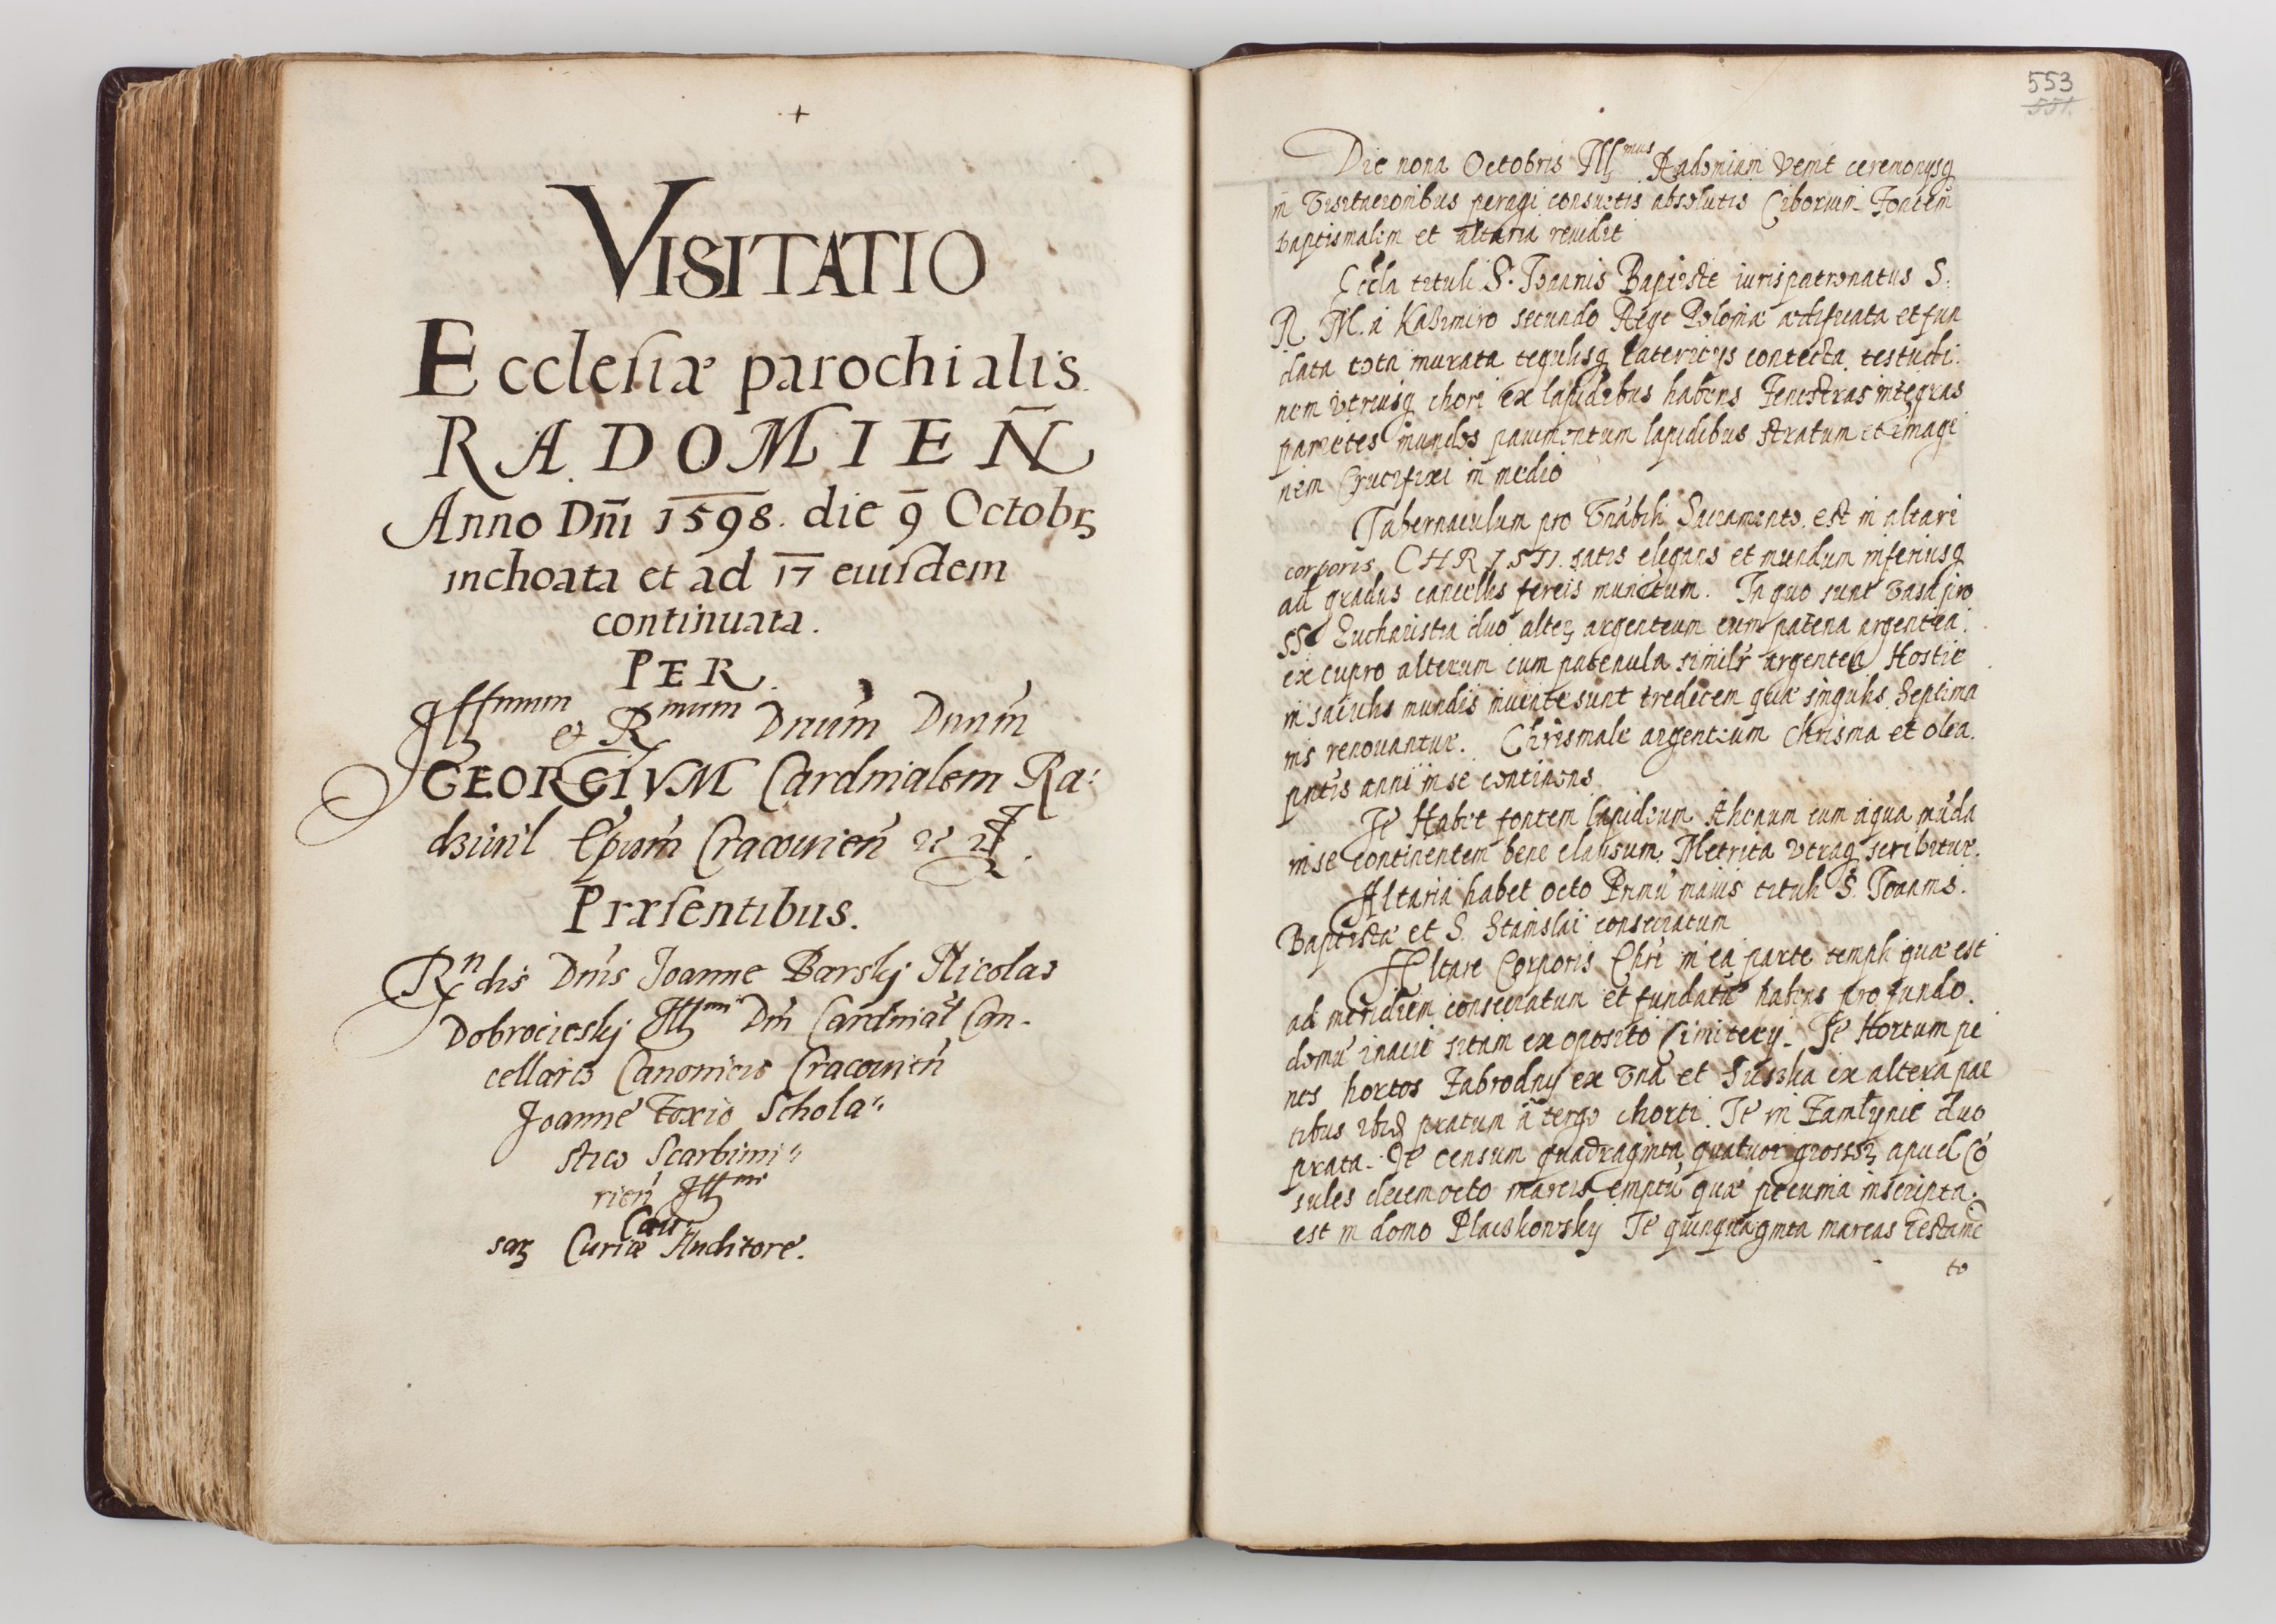 +
VISITATIO
Ecclesiæ parochialis
RADOMIEÑ
Anno Dñi 1598. die 9 Octobr
inchoata et ad 17 eiusdem
continuata.
PER.
Illmum et Rmum Dnum Dnum
GEORGIVM Cardinalem Ra:
dziuil Epum Cracouien
Præsentibus.
Rndis Dnis Joanne Barsky Nicolao
Dobrociesky Illmi Dni Cardinal Can-
cellario Canonicis Cracouien
Joanne Foxio Schola"
stico Scarbimi"
rien Illmi
Cau
sar Curiæ Auditore.
553
551.
Die nona Octobris Illmus Radomiam venit ceremonysq
in visitacionibus peragi consuetis absolutis Ciborium Fontem
baptismalem et altaria reuidit
Eccla tituli S. Joannis Baptiste iurispatronatus S.
R. M. a Kasimiro secundo Rege Poloniæ ædificata et fun
data tota murata tegulisq latericys contecta testudi:
nem vtriusq chori ex lapidibus habens Fenestras integras
parietes mundos pauimentum lapidibus stratum et imagi
nem Crucifixi in medio
Tabernaculum pro Vnabili Sacramento est in altari
corporis CHRISTI. satis elegans et mundum inferiusq
ad gradus cancellis fereis munitum. In quo sunt vasa pro
SSa Eucharistia duo alter argenteum cum patena argentea
ex cupro alterum cum patenula similr argentea Hostie
in saculis mundis inuente sunt tredecem quæ singulis Septima
nis renouantur. Chrismale argenteum chrisma et olea
pntis anni in se continens
It Habet fontem lapideum Ahenum cum aqua muda
in se continentem bene clausum. Metrica vtraq scribitur.
Altaria habet octo Primu maius tituli S. Joannis
Baptistæ et S. Stanislai consecratum
Altare Corporis Chri in ea parte templi quæ est
ad meridiem consecratum et fundatu habens pro fundo
domu in acie sitam ex oposito Cimitery. It Hortum pe
nes hortos Zabrodny ex vna et Suska ex altera par
tibus ibid pratum a tergo chorti. It in Zamlynie duo
prata. It censum quadraginta quatuor grossor apud Co
sules decemocto marcis emptu quæ pecunia inscripta
est in domo Placzkowsky It quinquaginta marcas testame
to